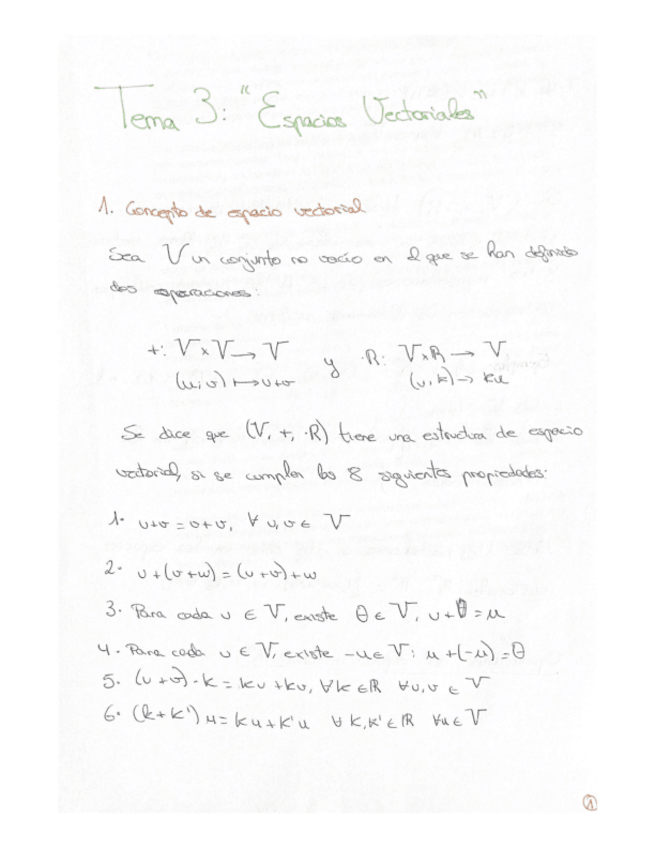 Tema 3: "Espacios Vectoriales"
1. Concepto de espacio vectorial
Sea V un conjunto no vacío en el que se han definido
dos operaciones:
+: V×V → V y ·R: V×R → V
(u,v) ↦ u+v (u,k) → ku
Se dice que (V, +, ·R) tiene una estructura de espacio
vectorial, si se cumplen los 8 siguientes propiedades:
1. u+v = v+u, ∀ u,v ∈ V
2. u+(v+w) = (u+v)+w
3. Para cada u ∈ V, existe θ ∈ V, u+θ = u
4. Para cada u ∈ V, existe -u ∈ V: u+(-u) = θ
5. (u+v)·k = ku+kv, ∀k ∈ R ∀u,v ∈ V
6. (k+k')u = ku+k'u ∀ k,k' ∈ R ∀u ∈ V
1